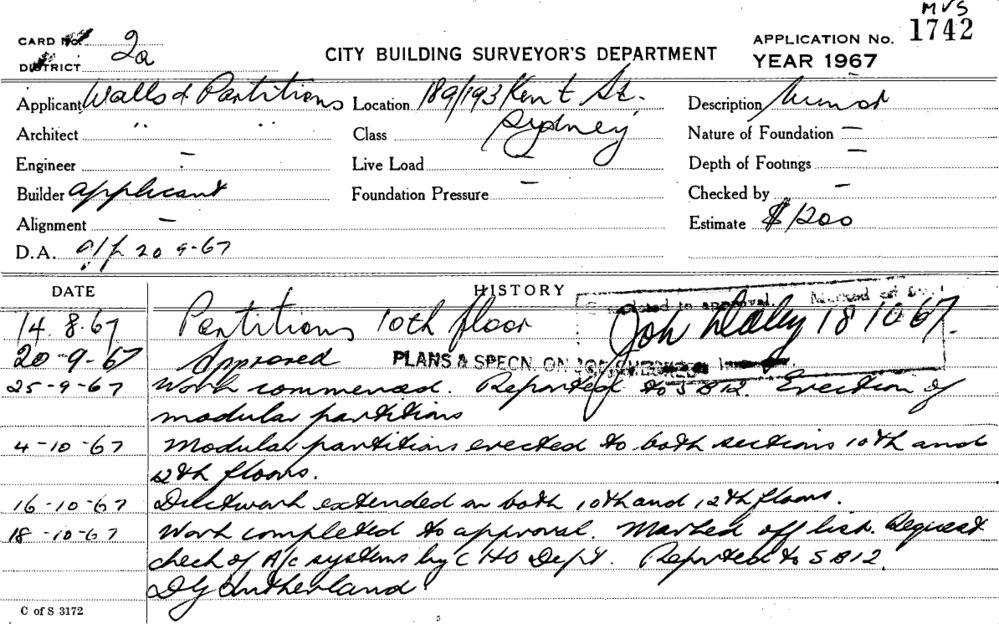 MVS
CARD No. 2a
CITY BUILDING SURVEYOR'S DEPARTMENT
APPLICATION No. 1742
DISTRICT
YEAR 1967
Applicant Walls & Partitions Location 189/193 Kent St. Description
Sydney
Architect " " Class Nature of Foundation —
Engineer — Live Load — Depth of Footings —
Builder applicant Foundation Pressure — Checked by —
Alignment — Estimate $1200
D.A. 20 9-67
DATE HISTORY
to approval. Marked off
14. 8. 67 Partitions 10th floor Daley 18 10 67.
20-9-67 Approved PLANS & SPECN. ON JOB CHECKED
25-9-67 Work commenced. Reported to SB12. Erection of
modular partitions
4-10-67 Modular partitions erected to both sections 10th and
12th floors.
16-10-67 Ductwork extended on both 10th and 12th floors.
18-10-67 Work completed to approval. Marked off list. Request
check of A/c systems by CHO Dept. Reported to SB12.
DG Sutherland
C of S 3172